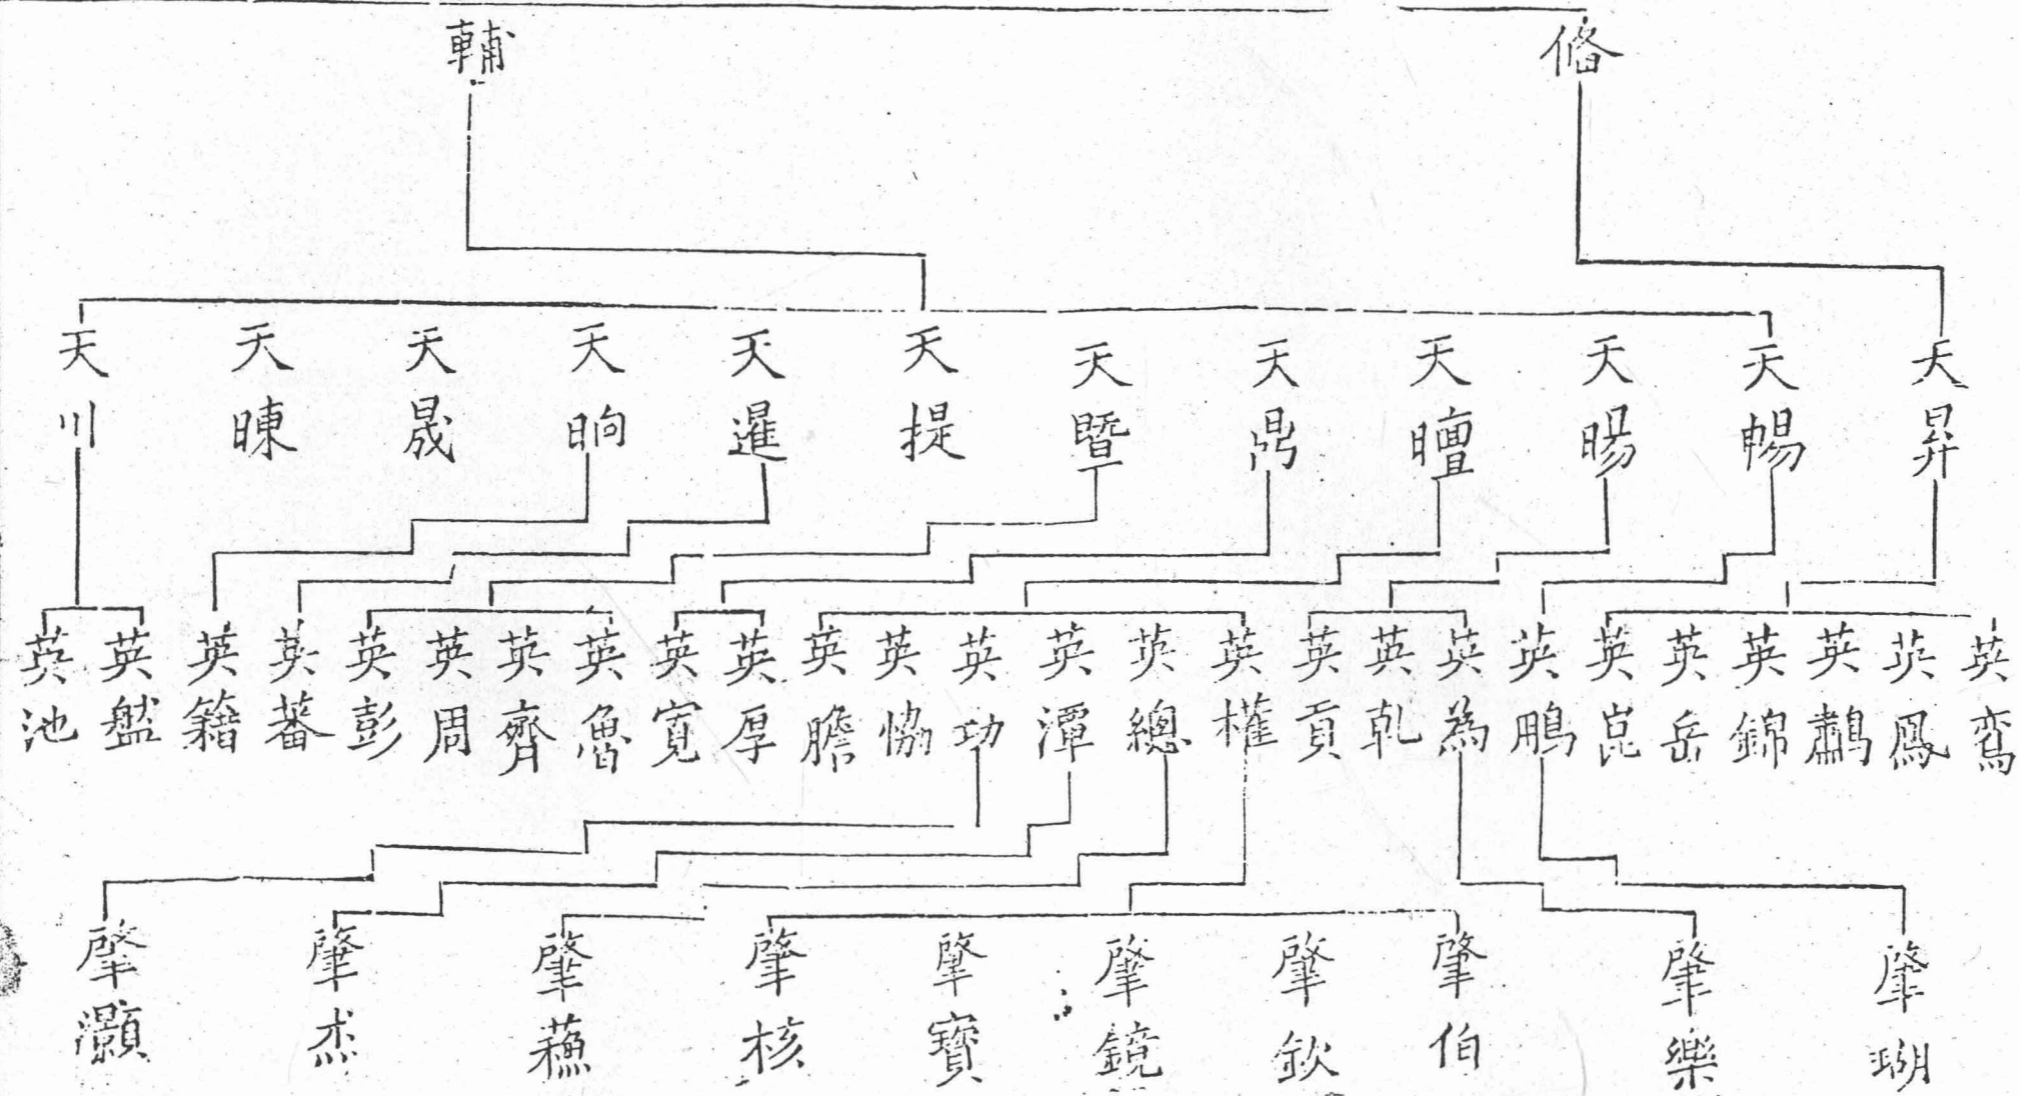 脩
輔
天昇
天暢
天暘
天䄠
天鼎
天暨
天提
天暹
天晌
天晟
天暕
天川
英鸾
英鳳
英鷫
英錦
英岳
英崑
英鵬
英為
英乹
英貢
英權
英總
英潭
英功
英恊
英膽
英厚
英寛
英魯
英齊
英周
英彭
英蕃
英籍
英盤
英池
肇瑚
肇樂
肇伯
肇欽
肇鏡
肇寳
肇核
肇蘓
肇杰
肇灝